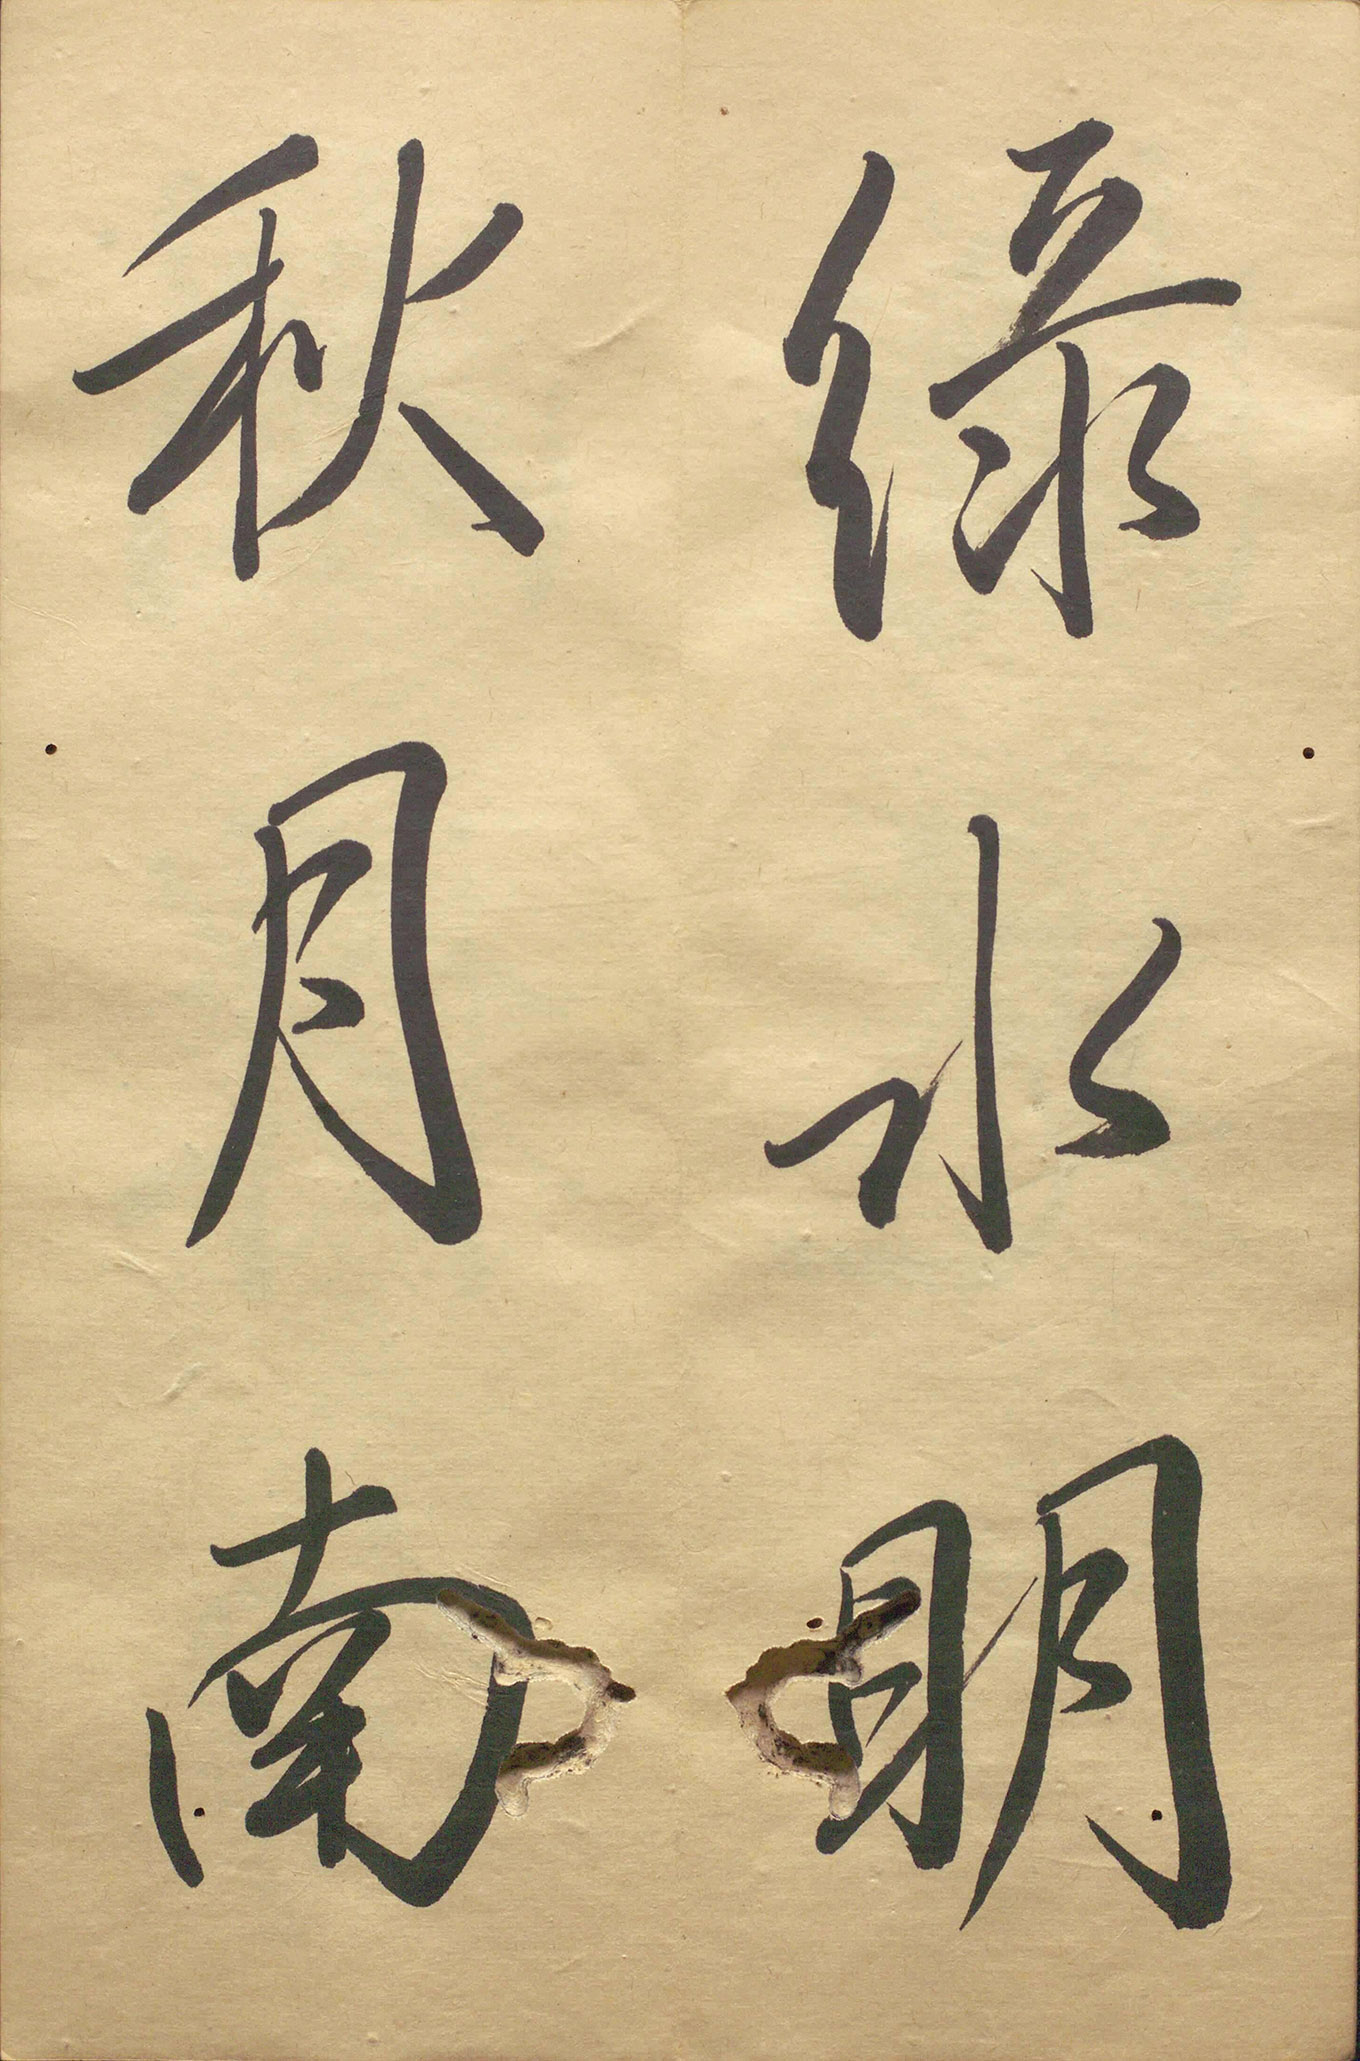 緑水明
秋月南